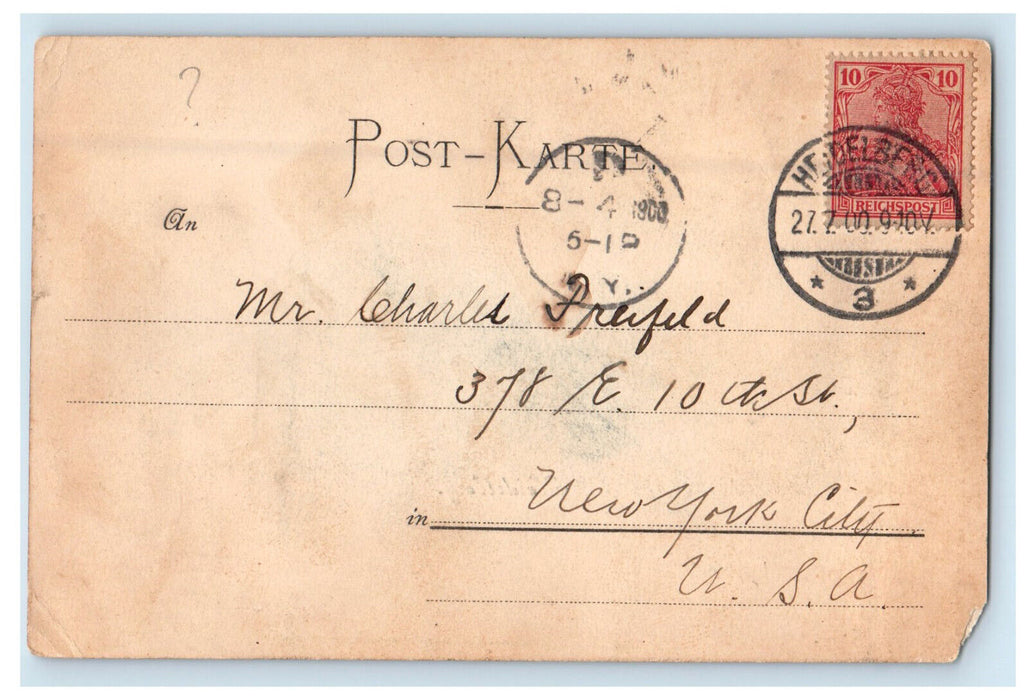 ?
10 10
REICHSPOST
POST-KARTE.
HEIDELBERG
27.7.00.9-10V.
* 3 *
8-4 1900
6-1P
N.Y.
An
Mr. Charles Freifeld
378 E. 10th St.,
in New York City.
U. S. A